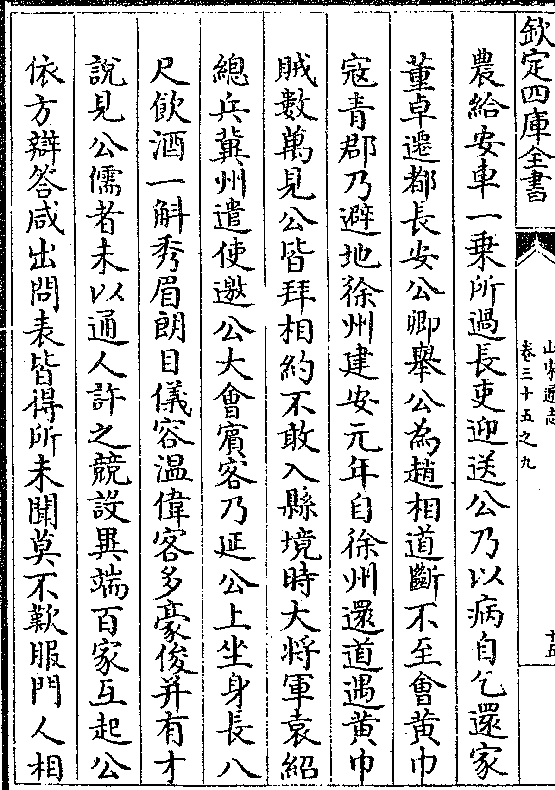 欽定四庫全書
山東通志
卷三十五之九
十五
農給安車一乗所過長吏迎送公乃以病自乞還家
董卓遷都長安公卿舉公為趙相道斷不至會黄巾
寇青郡乃避地徐州建安元年自徐州還道遇黄巾
賊數萬見公皆拜相約不敢入縣境時大將軍袁紹
總兵冀州遣使邀公大會賓客乃延公上坐身長八
尺飲酒一斛秀眉朗目儀容温偉客多豪俊并有才
說見公儒者未以通人許之競設異端百家互起公
依方辯答咸出問表皆得所未聞莫不歎服門人相